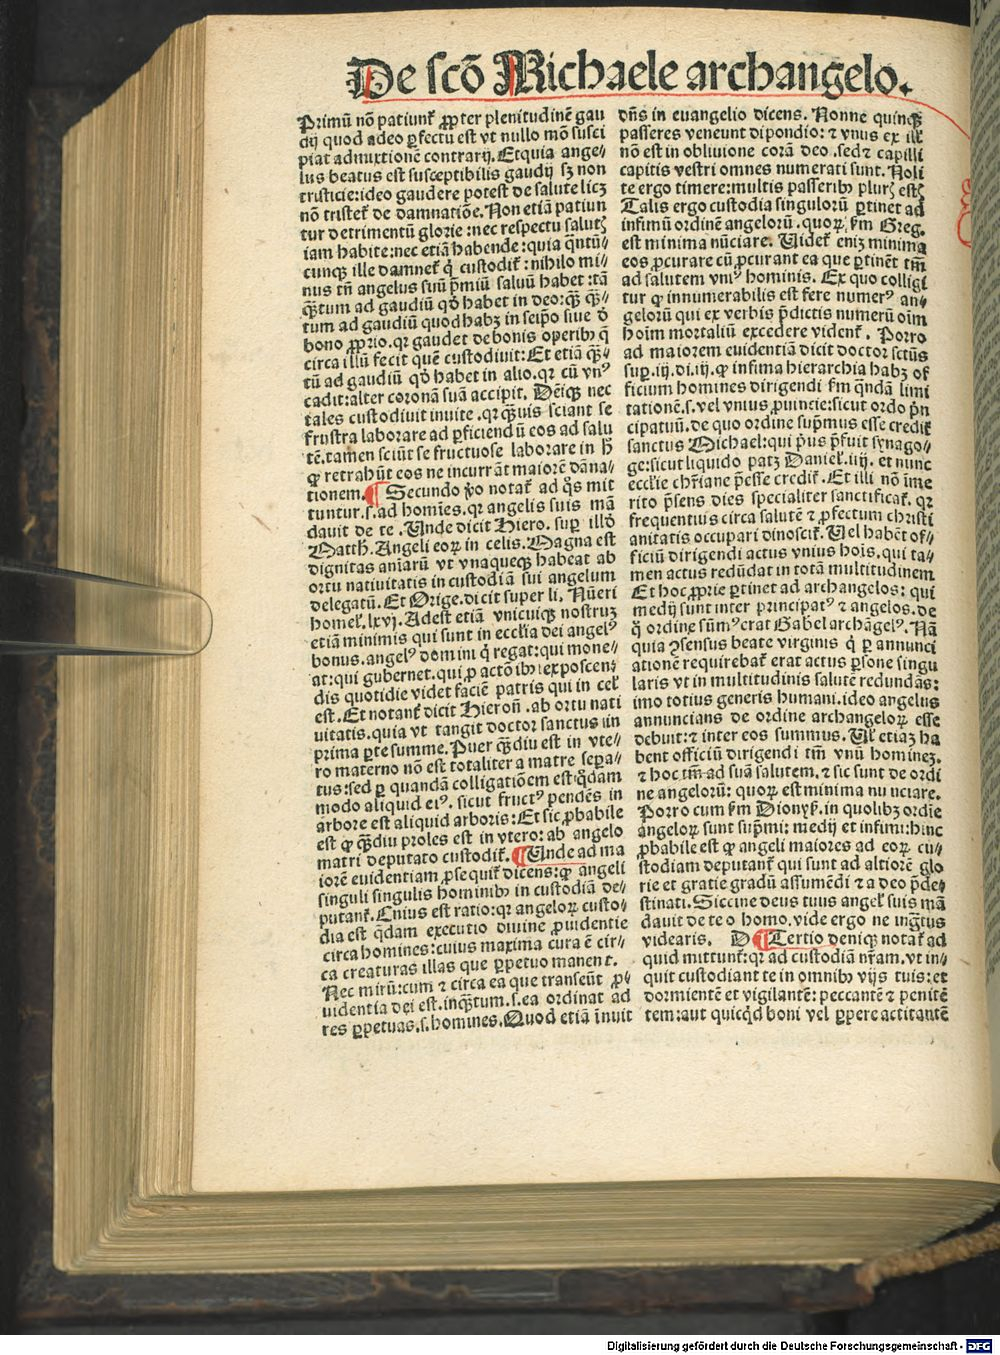 De scō Michaele archangelo.
Primū nō patiunt᷑ ꝓpter plenitudinē gau
dij quod adeo ꝑfectū est vt nullo mō susci
piat admixtionē contrarij. Et quia ange⸗
lus beatus est susceptibilis gaudij sꝫ non
tristicie: ideo gaudere potest de salute licꝫ
nō tristet᷑ de damnatiōe. Non etiā patiun
tur detrimentū glorie: nec respectu saluꝭ
iam habite: nec etiā habende: quia q̄ntū⸗
cunqꝫ ille damnet᷑ q̇ custodit᷑: nihilo mi⸗
nus tn̄ angelus suū p̄miū saluū habet: tā
q̄ꝫtum ad gaudiū qḋ habet in deo: qꝫ̄ q̄ꝫ⸗
tum ad gaudiū quod habꝫ in seip̄o siue ḋ
bono ꝓprio. qꝛ gaudet de bonis operibꝰ q̄
circa illū fecit quē custodiuit: Et etiā q̄ꝫ⸗
tū ad gaudiū qḋ habet in alio. qꝛ cū vnꝰ
cadit: alter coronā suā accipit. Deīqꝫ nec
tales custodiuit inuite. qꝛ q̄ꝫuis sciant se
frustra laborare ad ꝑficiendū eos ad salu
tē. tamen sciūt se fructuose laborare in ħ
ꝙ retrahūt eos ne incurrāt maiorē dāna⸗
tionem. ¶ Secundo v̇o notat᷑ ad q̇s mit
tuntur. s. ad homīes. qꝛ angelis suis mā
dauit de te. Unde dicit Hiero. suꝑ illḋ
Matth̄. Angeli eoꝝ in celis. Magna est
dignitas aīarū vt vnaqueqꝫ habeat ab
ortu natiuitatis in custodiā sui angelum
delegatū. Et Orige. dicit super li. Nūeri
homel̄. lxvj. Adest etiā vnicuiqꝫ nostruꝫ
etiā minimis qui sunt in eccl̄ia dei angelꝰ
bonus. angelꝰ domini q̇ regat: qui mone⸗
at: qui gubernet. qui ꝓ actōibꝰ exposcenꝭ
dis quotidie videt faciē patris qui in cel̄
est. Et notant᷑ dicit Hieron̄. ab ortu nati
uitatis. quia vt tangit doctor sanctus iin
prima ꝑte summe. Puer q̄ꝫdiu est in vte⸗
ro materno nō est totaliter a matre sepa⸗
tus: sed ꝑ quandā colligatiōem est q̇dam
modo aliquid eiꝰ. sicut fructꝰ pendēs in
arbore est aliquid arboris: Et sic ꝓbabile
est ꝙ q̄ꝫdiu proles est in vtero: ab angelo
matri deputato custodit᷑. ¶ Unde ad ma
iorē euidentiam ꝓsequit᷑ dicens: ꝙ angeli
singuli singulis hominibꝰ in custodiā de⸗
putant᷑. Cuius est ratio: qꝛ angeloꝝ custo⸗
dia est q̄dam executio diuine ꝓuidentie
circa homines: cuius maxima cura ē cir⸗
ca creaturas illas que ꝑpetuo manent.
Nec mirū: cum ⁊ circa ea que transeūt ꝓ⸗
uidentia dei est. inq̄ꝫtum. s. ea ordinat ad
res ꝑpetuas. s. homines. Quod etiā īnuit
dn̄s in euangelio dicens. Nonne quinqꝫ
passeres veneunt dipondio: ⁊ vnus ex ill᷑
nō est in obliuione corā deo. sed ⁊ capilli
capitis vestri omnes numerati sunt. Noli
te ergo timere: multis passeribꝰ plurꝭ estꝭ
Talis ergo custodia singulorū ꝑtinet ad
infimū ordinē angelorū. quoꝝ ẜm Greg.
est minima nūciare. Uidet᷑ eniꝫ minima
eos ꝓcurare cū ꝓcurant ea que ꝑtinēt tm̄
ad salutem vniꝰ hominis. Ex quo colligi
tur ꝙ innumerabilis est fere numerꝰ an⸗
gelorū qui ex verbis p̄dictis numerū oīm
hoīm mortaliū excedere vident᷑. Porro
ad maiorem euidentiā dicit doctor sctūs
suꝑ. iij. di. iij. ꝙ infima hierarchia habꝫ of
ficium homines dirigendi ẜm q̄ndā limi
tationē. s. vel vnius ꝓuincie: sicut ordo p̄n
cipatuū. de quo ordine sup̄mus esse credit᷑
sanctus Michael: qui p̄us p̄fuit synago⸗
ge: sicut liquido patꝫ Daniel̄. iij. et nunc
eccl̄ie chr̄iane p̄esse credit᷑. Et illi nō īme
rito p̄sens dies specialiter sanctificat᷑. qꝛ
frequentius circa salutē ⁊ ꝓfectum christi
anitatis occupari dinoscit᷑. Uel habēt of⸗
ficiū dirigendi actus vnius hoīs. qui ta⸗
men actus redūdat in totā multitudinem
Et hoc ꝓprie ꝑtinet ad archangelos: qui
medij sunt inter principatꝰ ⁊ angelos. de
q̇ ordine sūmꝰ erat Gabel archāgelꝰ. Nā
quia ꝯsensus beate virginis q̇ ꝑ annunci
ationē requirebat᷑ erat actus ꝑsone singu
laris vt in multitudinis salutē redundās:
imo totius generis humani. ideo angelus
annuncians de ordine archangeloꝝ esse
debuit: ⁊ inter eos summus. Ul᷑ etiaꝫ ha
bent officiū dirigendi tm̄ vnū hominez.
⁊ hoc tm̄ ad suā salutem. ⁊ sic sunt de ordi
ne angelorū: quoꝝ est minima nunciare.
Porro cum ẜm Dionyẜ. in quolibꝫ ordīe
angeloꝝ sunt sup̄mi: medij et infimi: hinc
ꝓbabile est ꝙ angeli maiores ad eoꝝ cu⸗
stodiam deputant᷑ qui sunt ad altiorē glo
rie et gratie gradū assumēdi ⁊ a deo p̄de⸗
stinati. Siccine deus tuus angel᷑ suis mā
dauit de te o homo. vide ergo ne ingr̄tus
videaris. D ¶ Tertio deniqꝫ notat᷑ ad
quid mittunt᷑: qꝛ ad custodiā nr̄am. vt in⸗
quit custodiant te in omnibꝰ vijs tuis: et
dormientē et vigilantē: peccantē ⁊ penitē
tem: aut quicq̇d boni vel ꝑpere actitantē
Digitalisierung gefördert durch die Deutsche Forschungsgemeinschaft - DFG